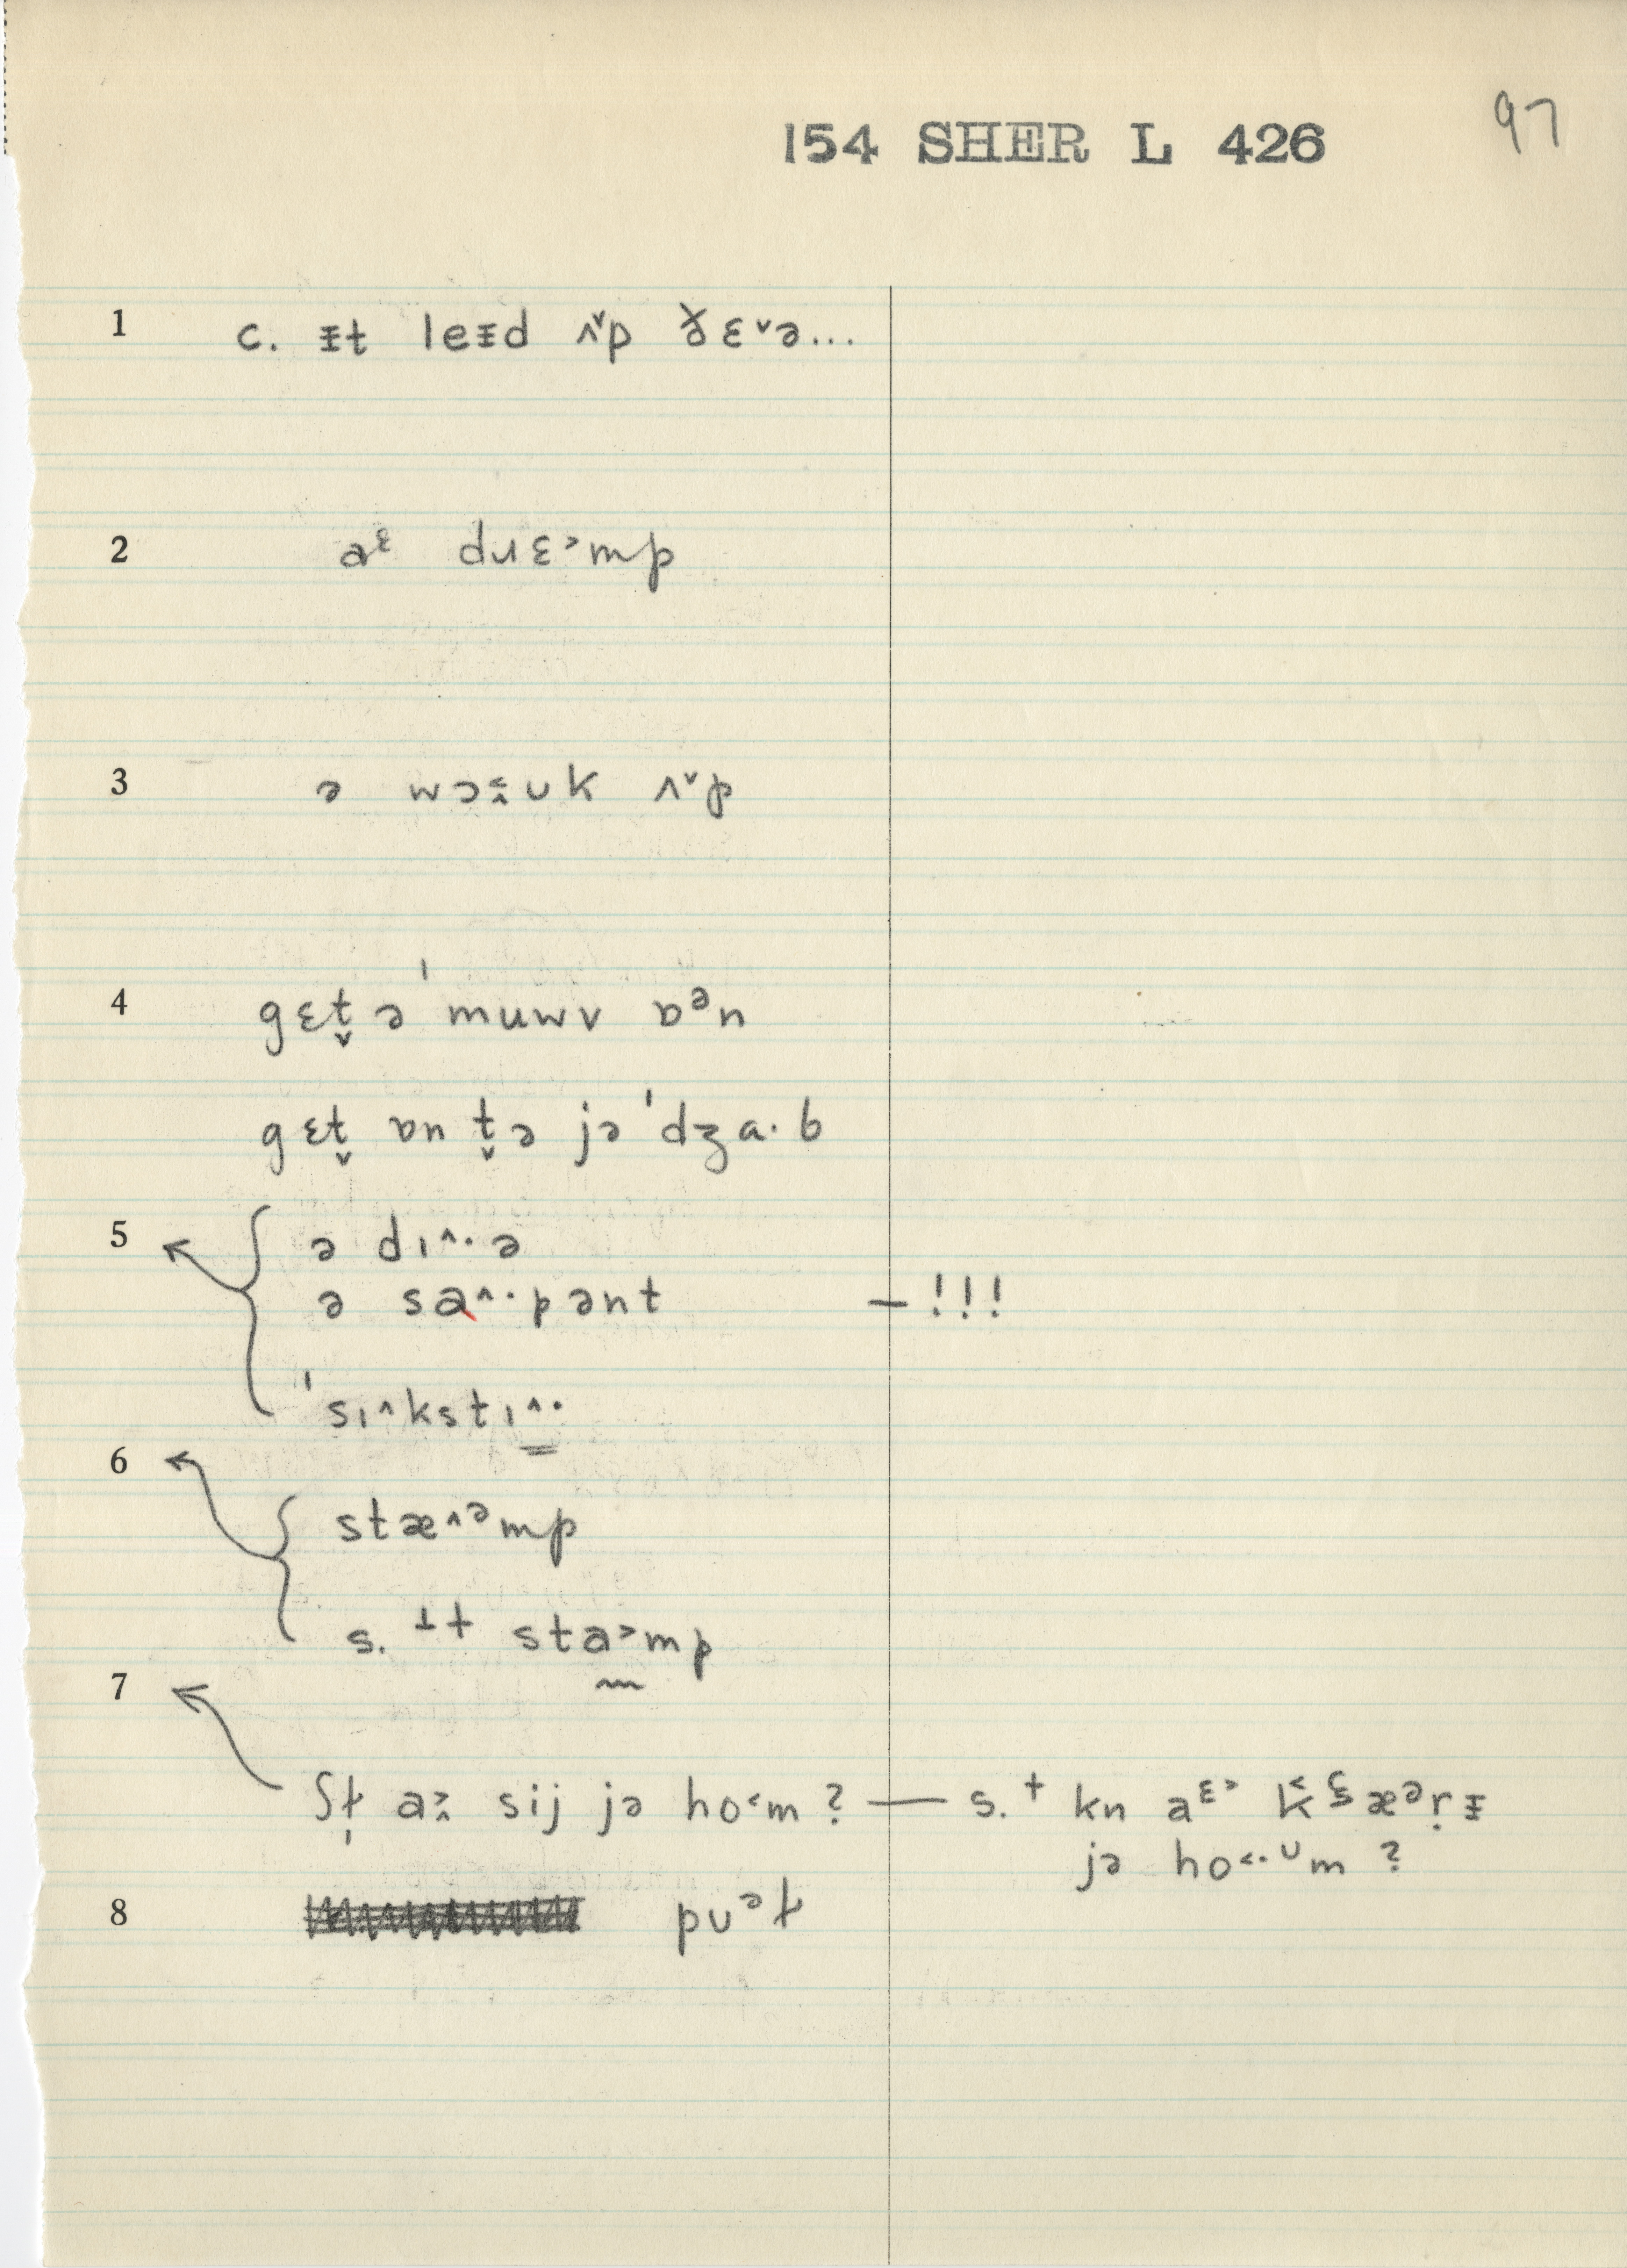 154 SHER L 426 97
1 c. ᵻt leᵻd ʌ˅p ð̆ɛ˅ə...
2 aᵋ dɹɛ˃mp
3 ə wɔ˂̭ʊk ʌ˅p
4 gɛt̬ ə ˈmuwv ɒᵊn
gɛt̬ ɒn t̬ə jə ˈdʒa·b
5 ə dɪ˄·ə
ə sa˄·pənt – !!!
ˈsɪ˄kstɪ˄·
6 stæ˄ᵊmp
s. ⊥† sta˃mp
7 ʃɫ̩ a˃̭ sij jə ho˂m ? — s. † kn aᵋ˃ kæᵊrᵻ
jə ho˂·ᶸm ?
8 pʊᵊɫ